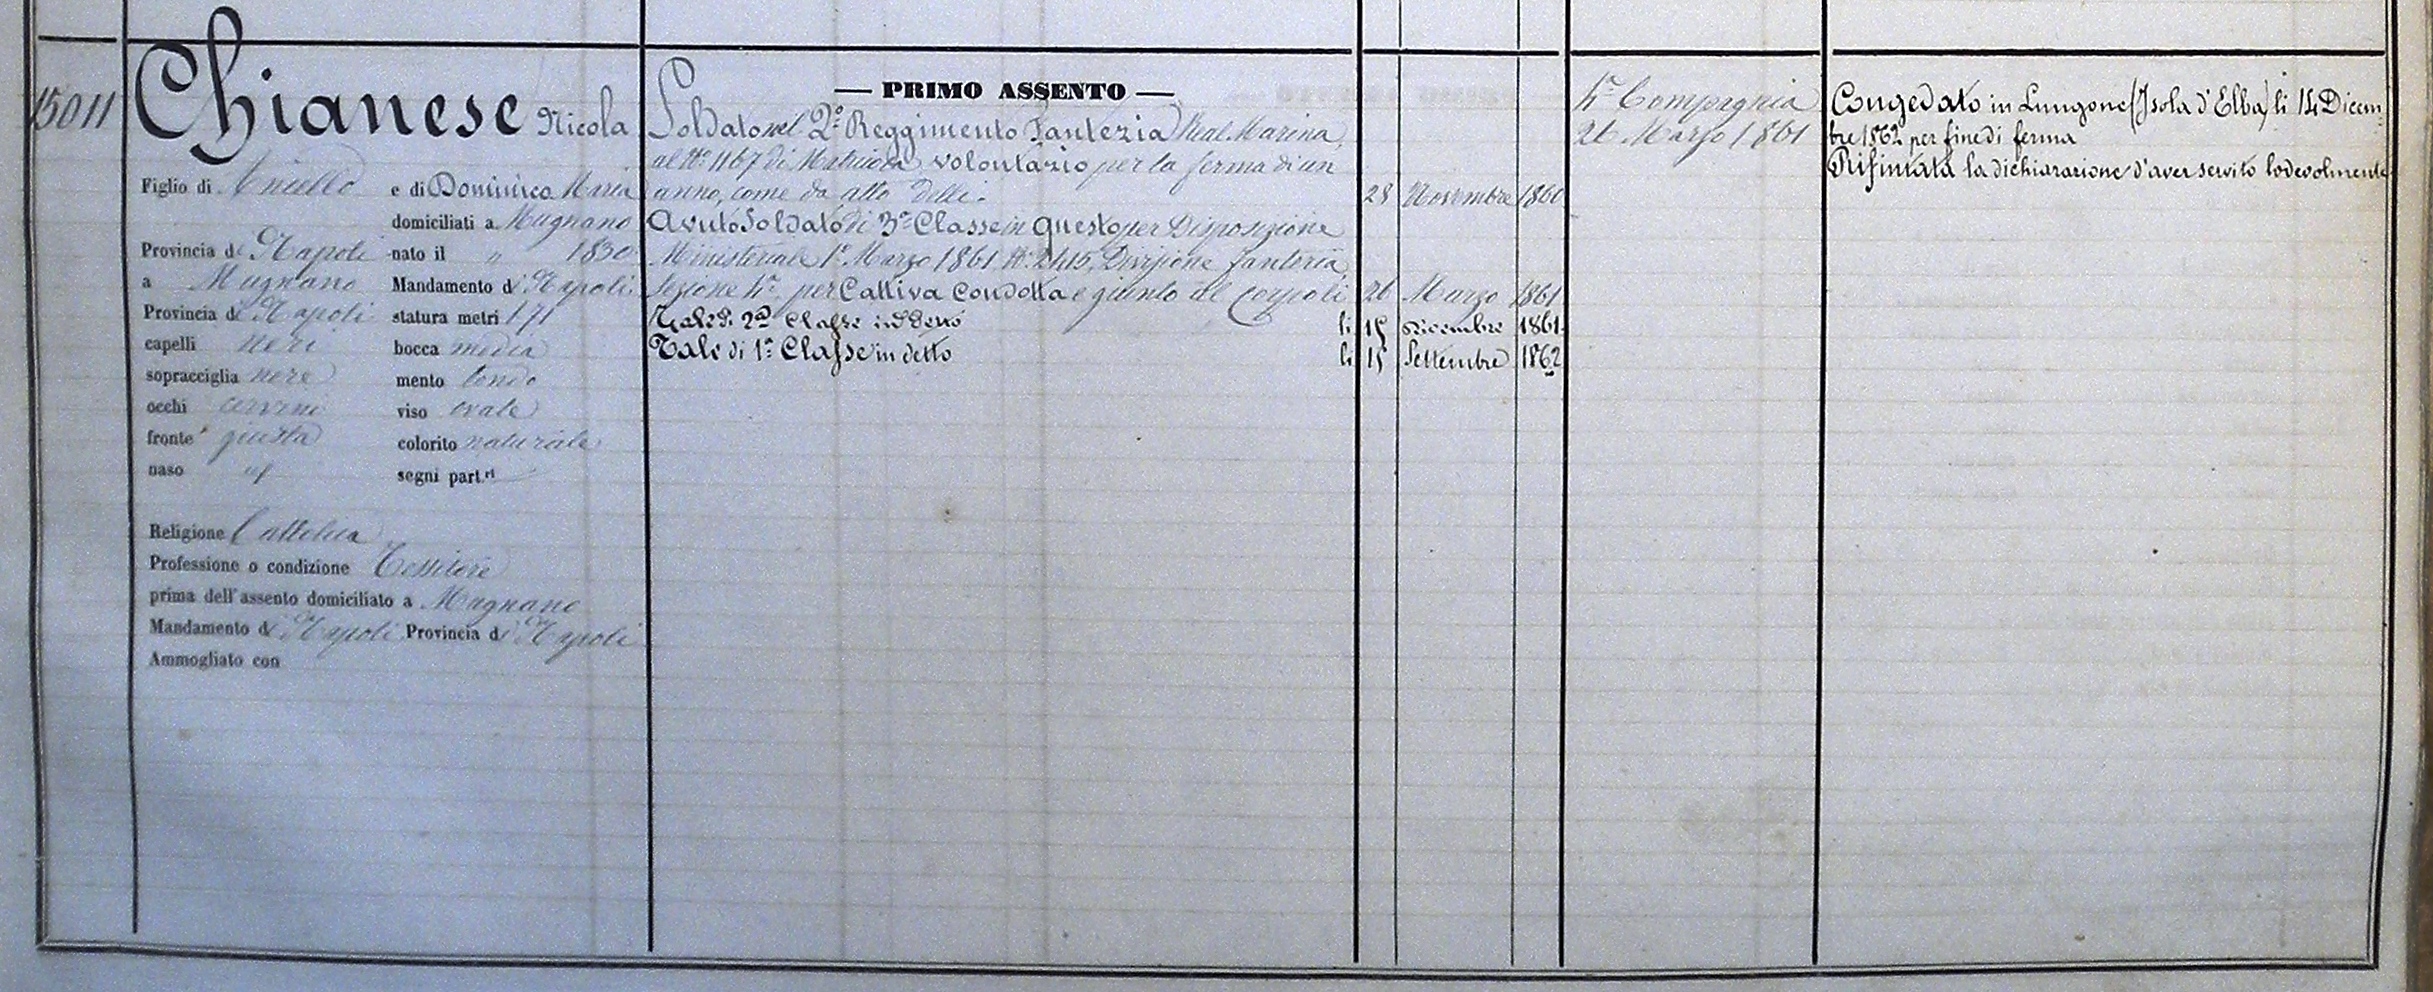 15011
Chianese Nicola
Figlio di Aniello e di Dominica Maria
domiciliati a Mugnano
Provincia di Napoli nato il " 1830
a Mugnano Mandamento di Napoli
Provincia di Napoli statura metri 1 71
capelli neri bocca media
sopracciglia nere mento tondo
occhi cervini viso ovale
fronte giusta colorito naturale
naso segni part.ri
Religione Cattolica
Professione o condizione Tessitore
prima dell'assento domiciliato a Mugnano
Mandamento di Napoli Provincia di Napoli
Ammogliato con
— PRIMO ASSENTO —
Soldato nel 2º Reggimento Fanteria Real Marina,
al Nº 1167 di Matricola volontario per la ferma di un
anno, come da atto delli. 28 Novembre 1860
Avuto Soldato di 3ª Classe in questo per Disposizione
Ministeriale 1º Marzo 1861 Nº 2415, Divisione fanteria,
Sezione 4ª, per Cattiva Condotta e giunto al corpo li 26 Marzo 1861
Tale di 2ª Classe in detto li 15 Dicembre 1861
Tale di 1ª Classe in detto li 15 Settembre 1862
4ª Compagnia
26 Marzo 1861
Congedato in Lungone (Isola d'Elba) li 14 Dicem
bre 1862 per fine di ferma
Rifiutata la dichiarazione d'aver servito lodevolmente